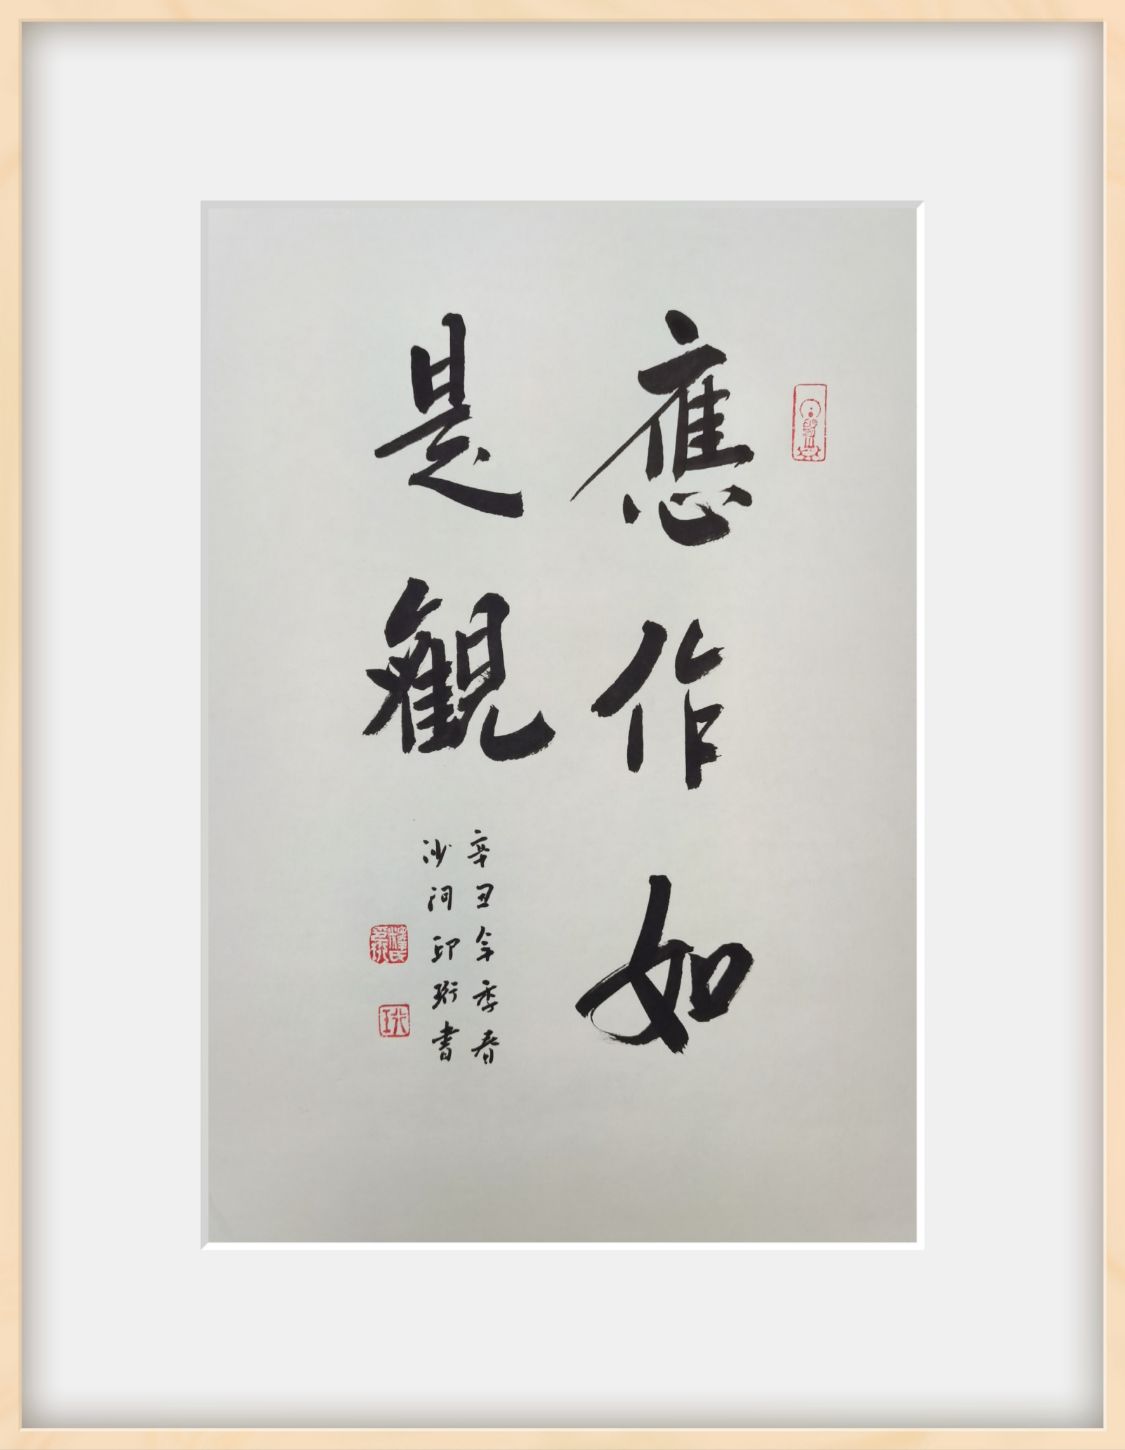 應作如
是觀
辛丑年季春
沙門印珩書